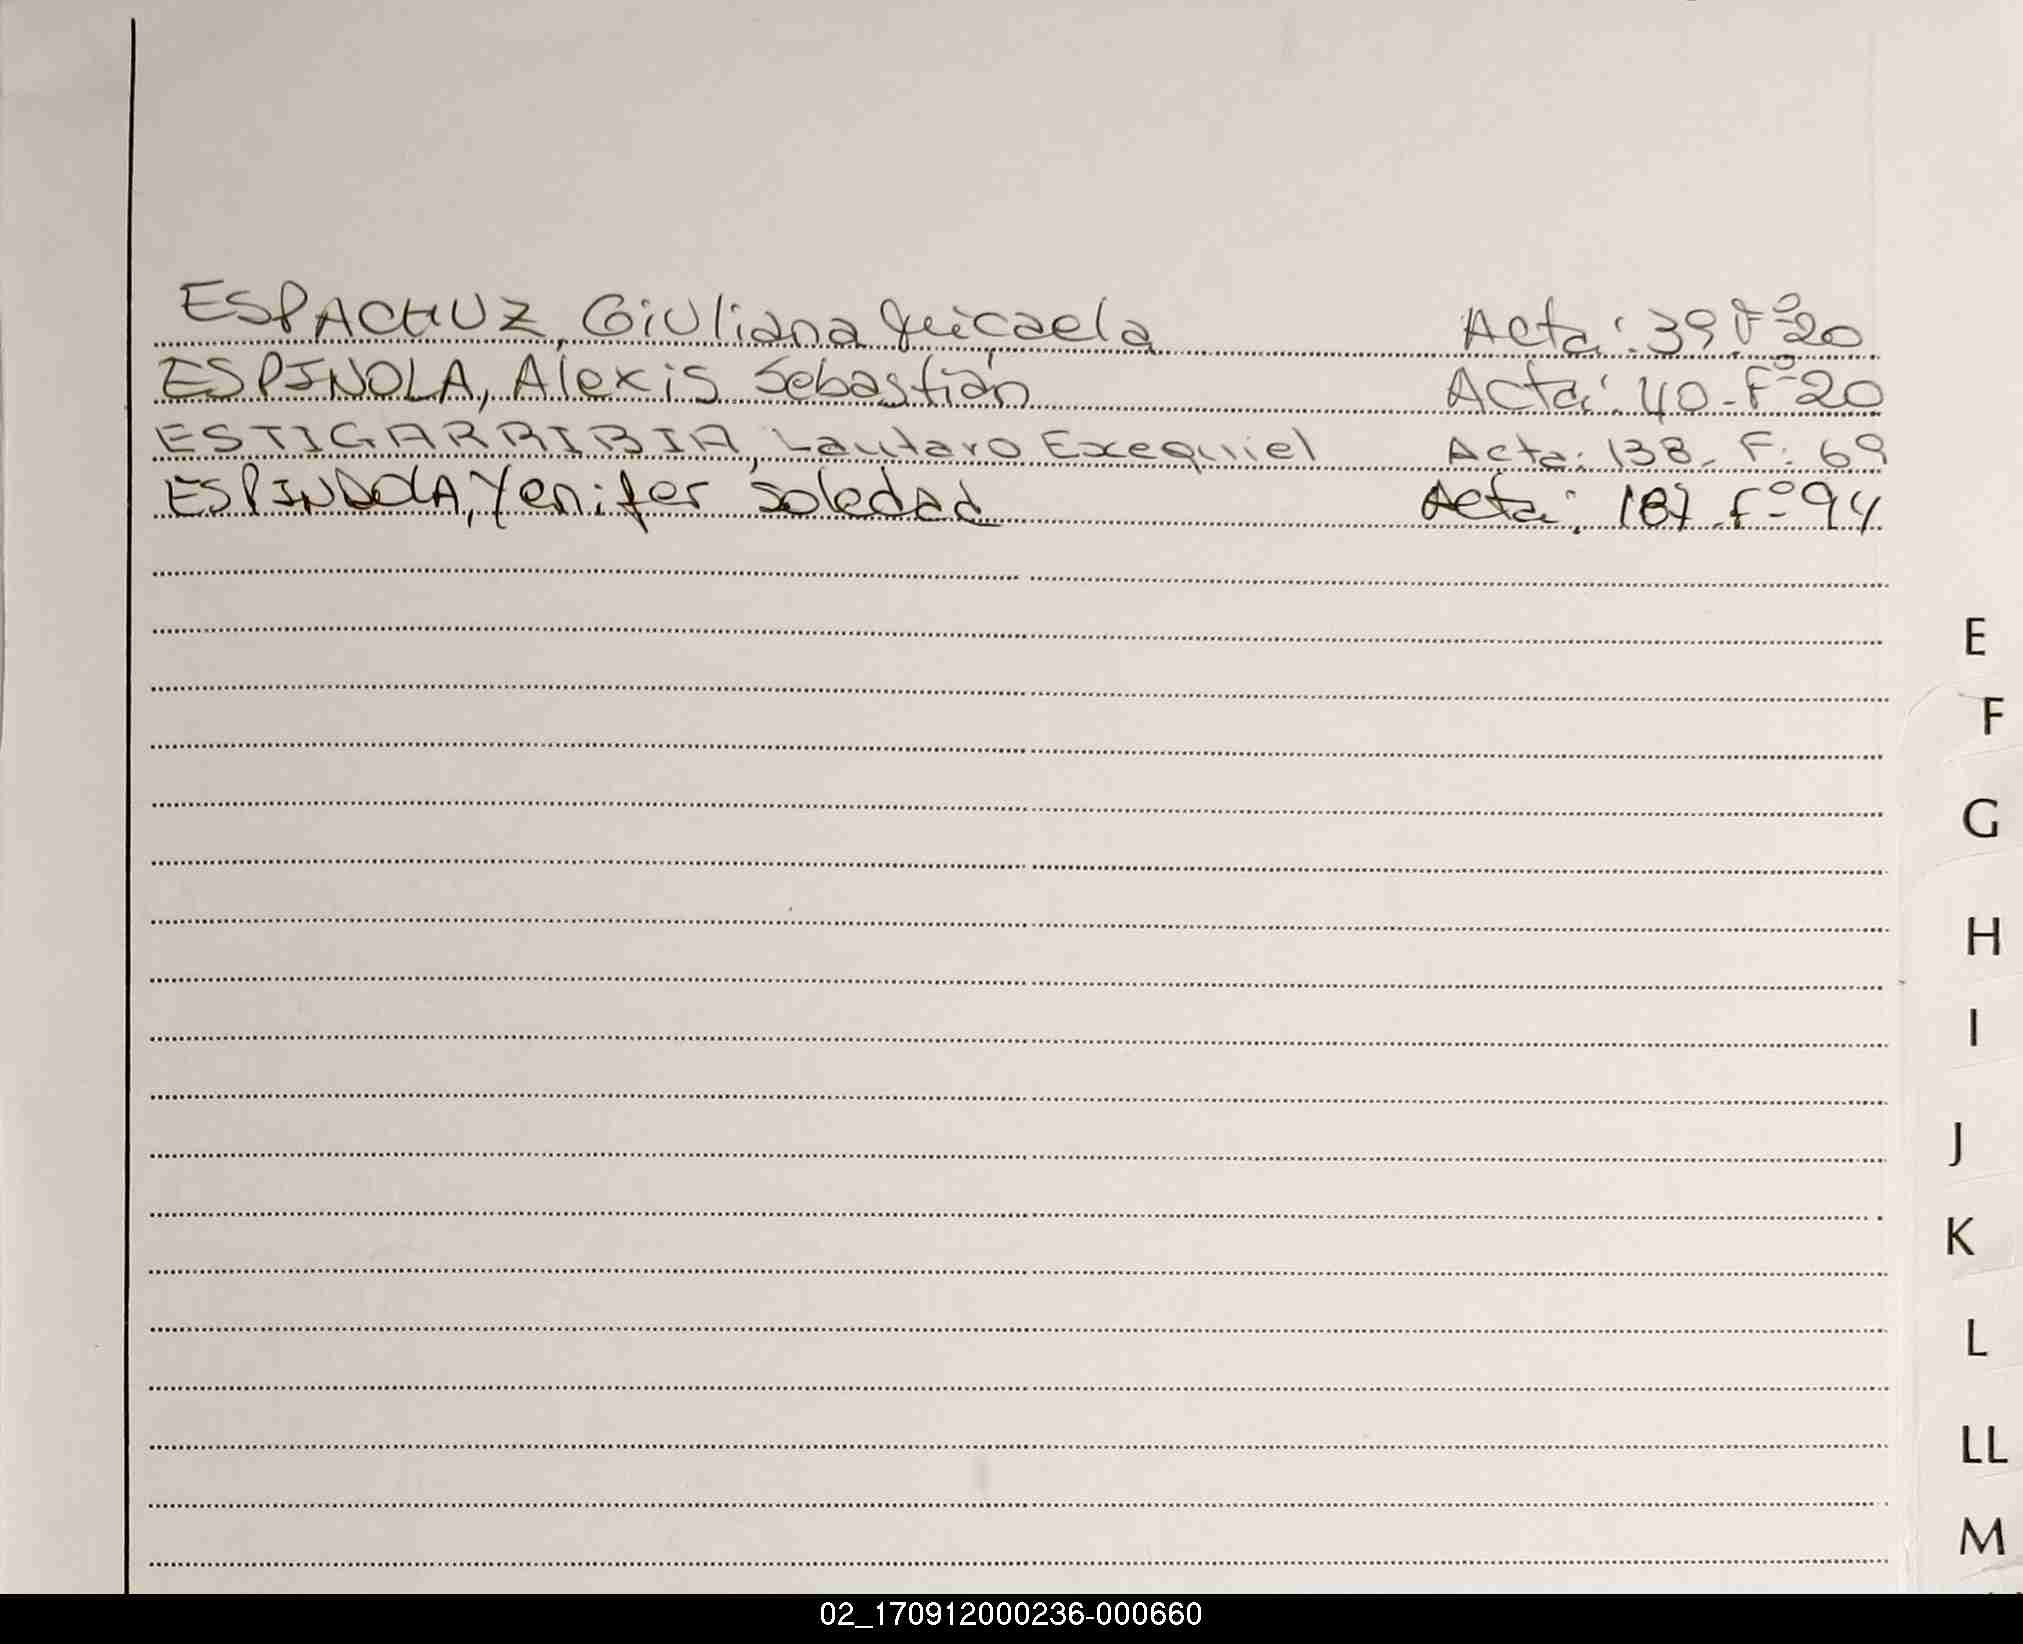 ESPACHUZ, Giuliana Micaela Acta: 39 Fº 20
ESPINOLA, Alexis Sebastián Acta: 40 - Fº 20
ESTIGARRIBIA, Lautaro Exequiel Acta: 138 - F: 69
ESPINDOLA, Yenifer Soledad Acta: 187 - Fº 94
E
F
G
H
I
J
K
L
LL
M
02_170912000236-000660